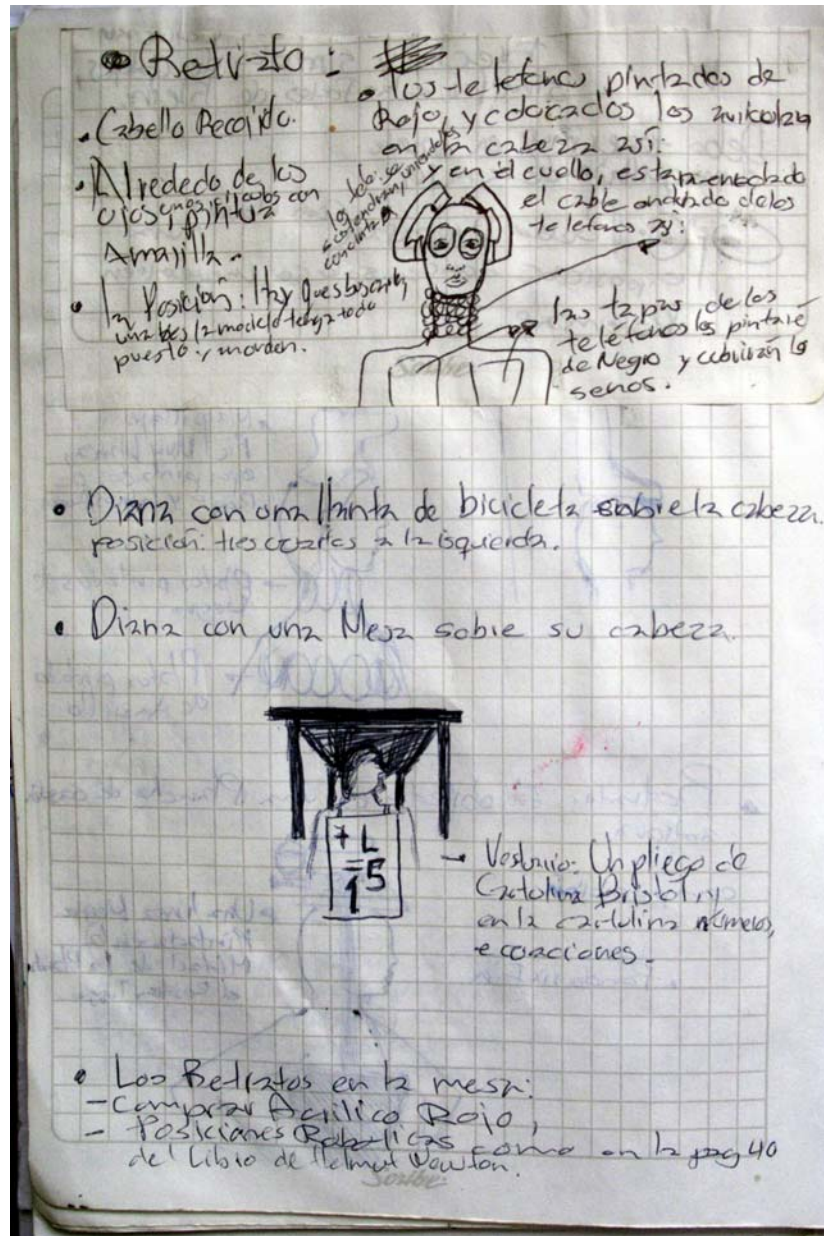 • Retrato:
• Cabello Recojido.
• Alrededo de los
ojos, pintura
Amarilla.
• la Posición: Hay que buscarla,
una bes la modelo tenga todo
puesto
• los telefonos pintados de
Rojo, y colocados los auriculares
en la cabeza así:
y en el cuello, estara enrollado
el cable ondulado de los
telefonos así:
los tels. se
sostendran, uniendolos
con cinta
las tapas de los
teléfonos las pintaré
de Negro y cubrirán los
senos.
• Diana con una llanta de bicicleta sobre la cabeza.
posición: tres cuartos a la isquierda.
• Diana con una Mesa sobre su cabeza.
+ L
= 5
1
→ Vestuario: Un pliego de
Cartolina Bristol, y
en la cartolina números,
ecuaciones.
• Los Retratos en la mesa:
- Comprar Acrilico Rojo,
- Posiciones Roboticas como en la pag 40
del Libro de Helmut Newton.
Scribe